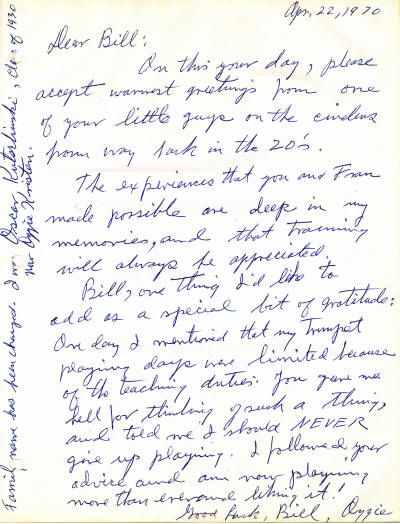 Apr. 22, 1970
Dear Bill:
On this your day, please
accept warmest greetings from one
of your little guys on the cinders
from way back in the 20's.
The experiences that you and Fran
made possible are deep in my
memories, and that training
will always be appreciated.
Bill, one thing I'd like to
add as a special bit of gratitude:
One day I mentioned that my trumpet
playing days were limited because
of the teaching duties. You gave me
hell for thinking of such a thing,
and told me I should NEVER
give up playing. I followed your
advice and am now playing
more than ever and liking it!
Good Luck, Bill, Oggie
Family name has been changed. I was Oscar, Class of 1930
now Oggie